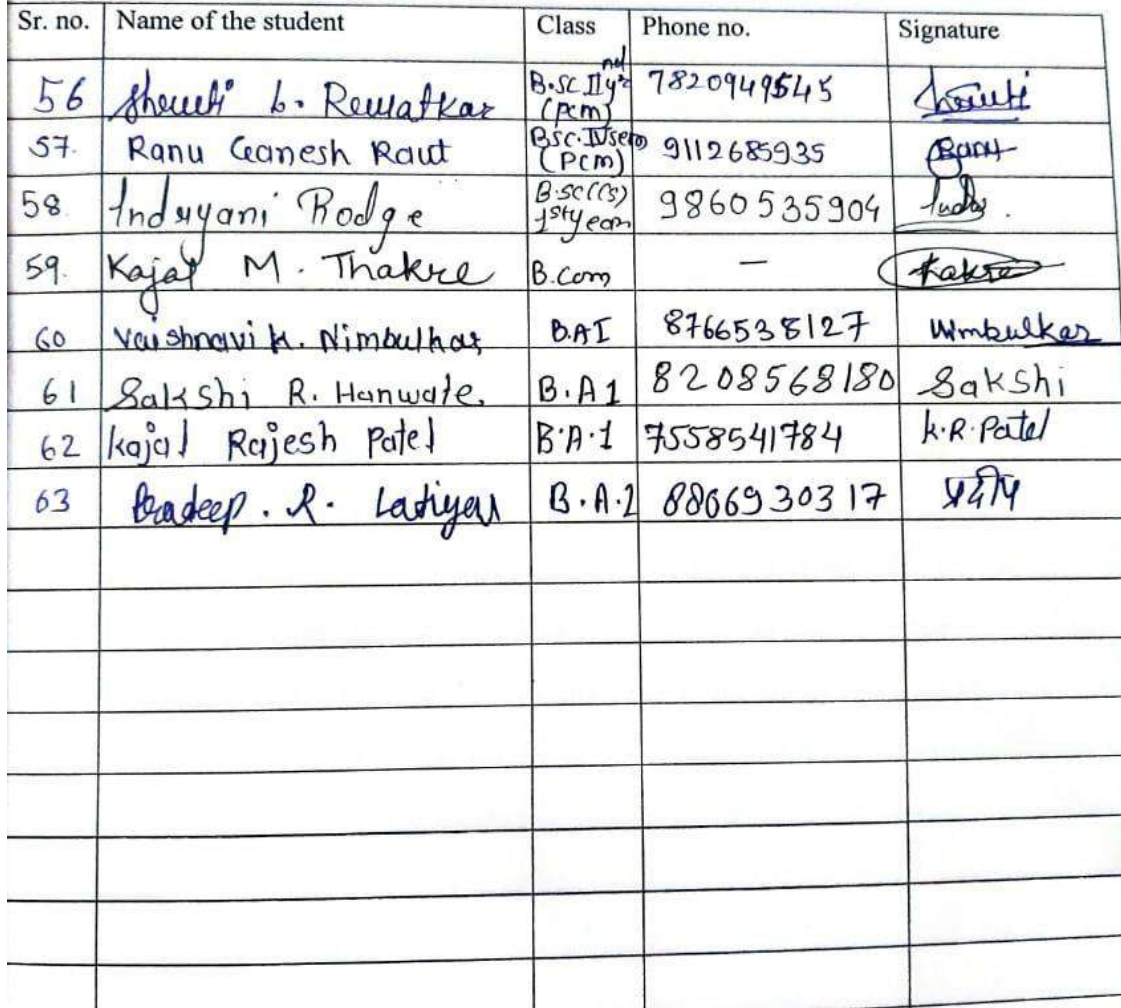 Sr. no. Name of the student Class Phone no. Signature
56 Shruti L. Rewatkar B.SC IInd yr (PCM) 7820949545 Shruti
57. Ranu Ganesh Raut BSC.IVsem (PCM) 9112685935 Ranu
58 Indryani Rodge B.SC(CS) 1styear 9860535904
59. Kajal M. Thakre B.Com —
60 Vaishnavi K. Nimbulkar B.A I 8766538127 Nimbulkar
61 Sakshi R. Hanwate. B.A 1 8208568180 Sakshi
62 Kajal Rajesh Patel B.A.1 7558541784 K.R.Patel
63 Pradeep. R. B.A.1 8806930317 प्रदीप